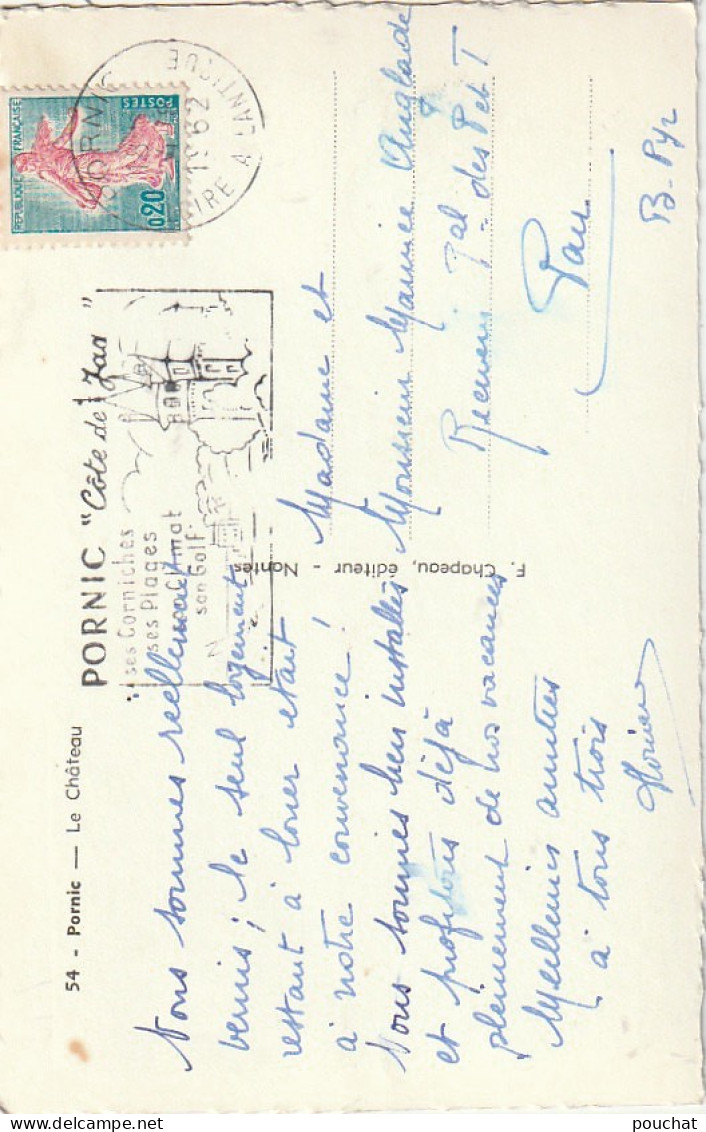 54 - Pornic — Le Château
PORNIC "Côte de Jas"
ses Corniches
ses Plages
son Climat
son Golf
REPUBLIQUE FRANÇAISE
POSTES
0,20
PORNIC
1962
LOIRE ATLANTIQUE
F. Chapeau, éditeur - Nantes
Nous sommes réellement
vernis ; le seul logement
restant à louer était
à notre convenance !
Nous sommes bien installés
et profitons déjà
pleinement de nos vacances
Meilleures amitiés
à tous trois
Madame et
Monsieur Maurice Anglade
Receveur Pal des P et T
Pau
B. Pyr
pouchat